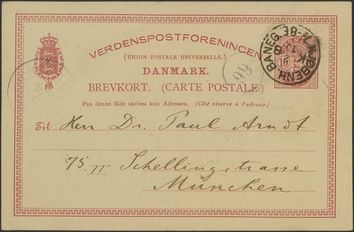 VERDENSPOSTFORENINGEN
(UNION POSTALE UNIVERSELLE.)
DANMARK.
BREVKORT. (CARTE POSTALE)
Paa denne Side skrives kun Adressen. (Côté réservé à l'adresse.)
Til Herr Dr. Paul Arndt
75 II Schellingstrasse
München
KJØBENH. BANEG.
10
99